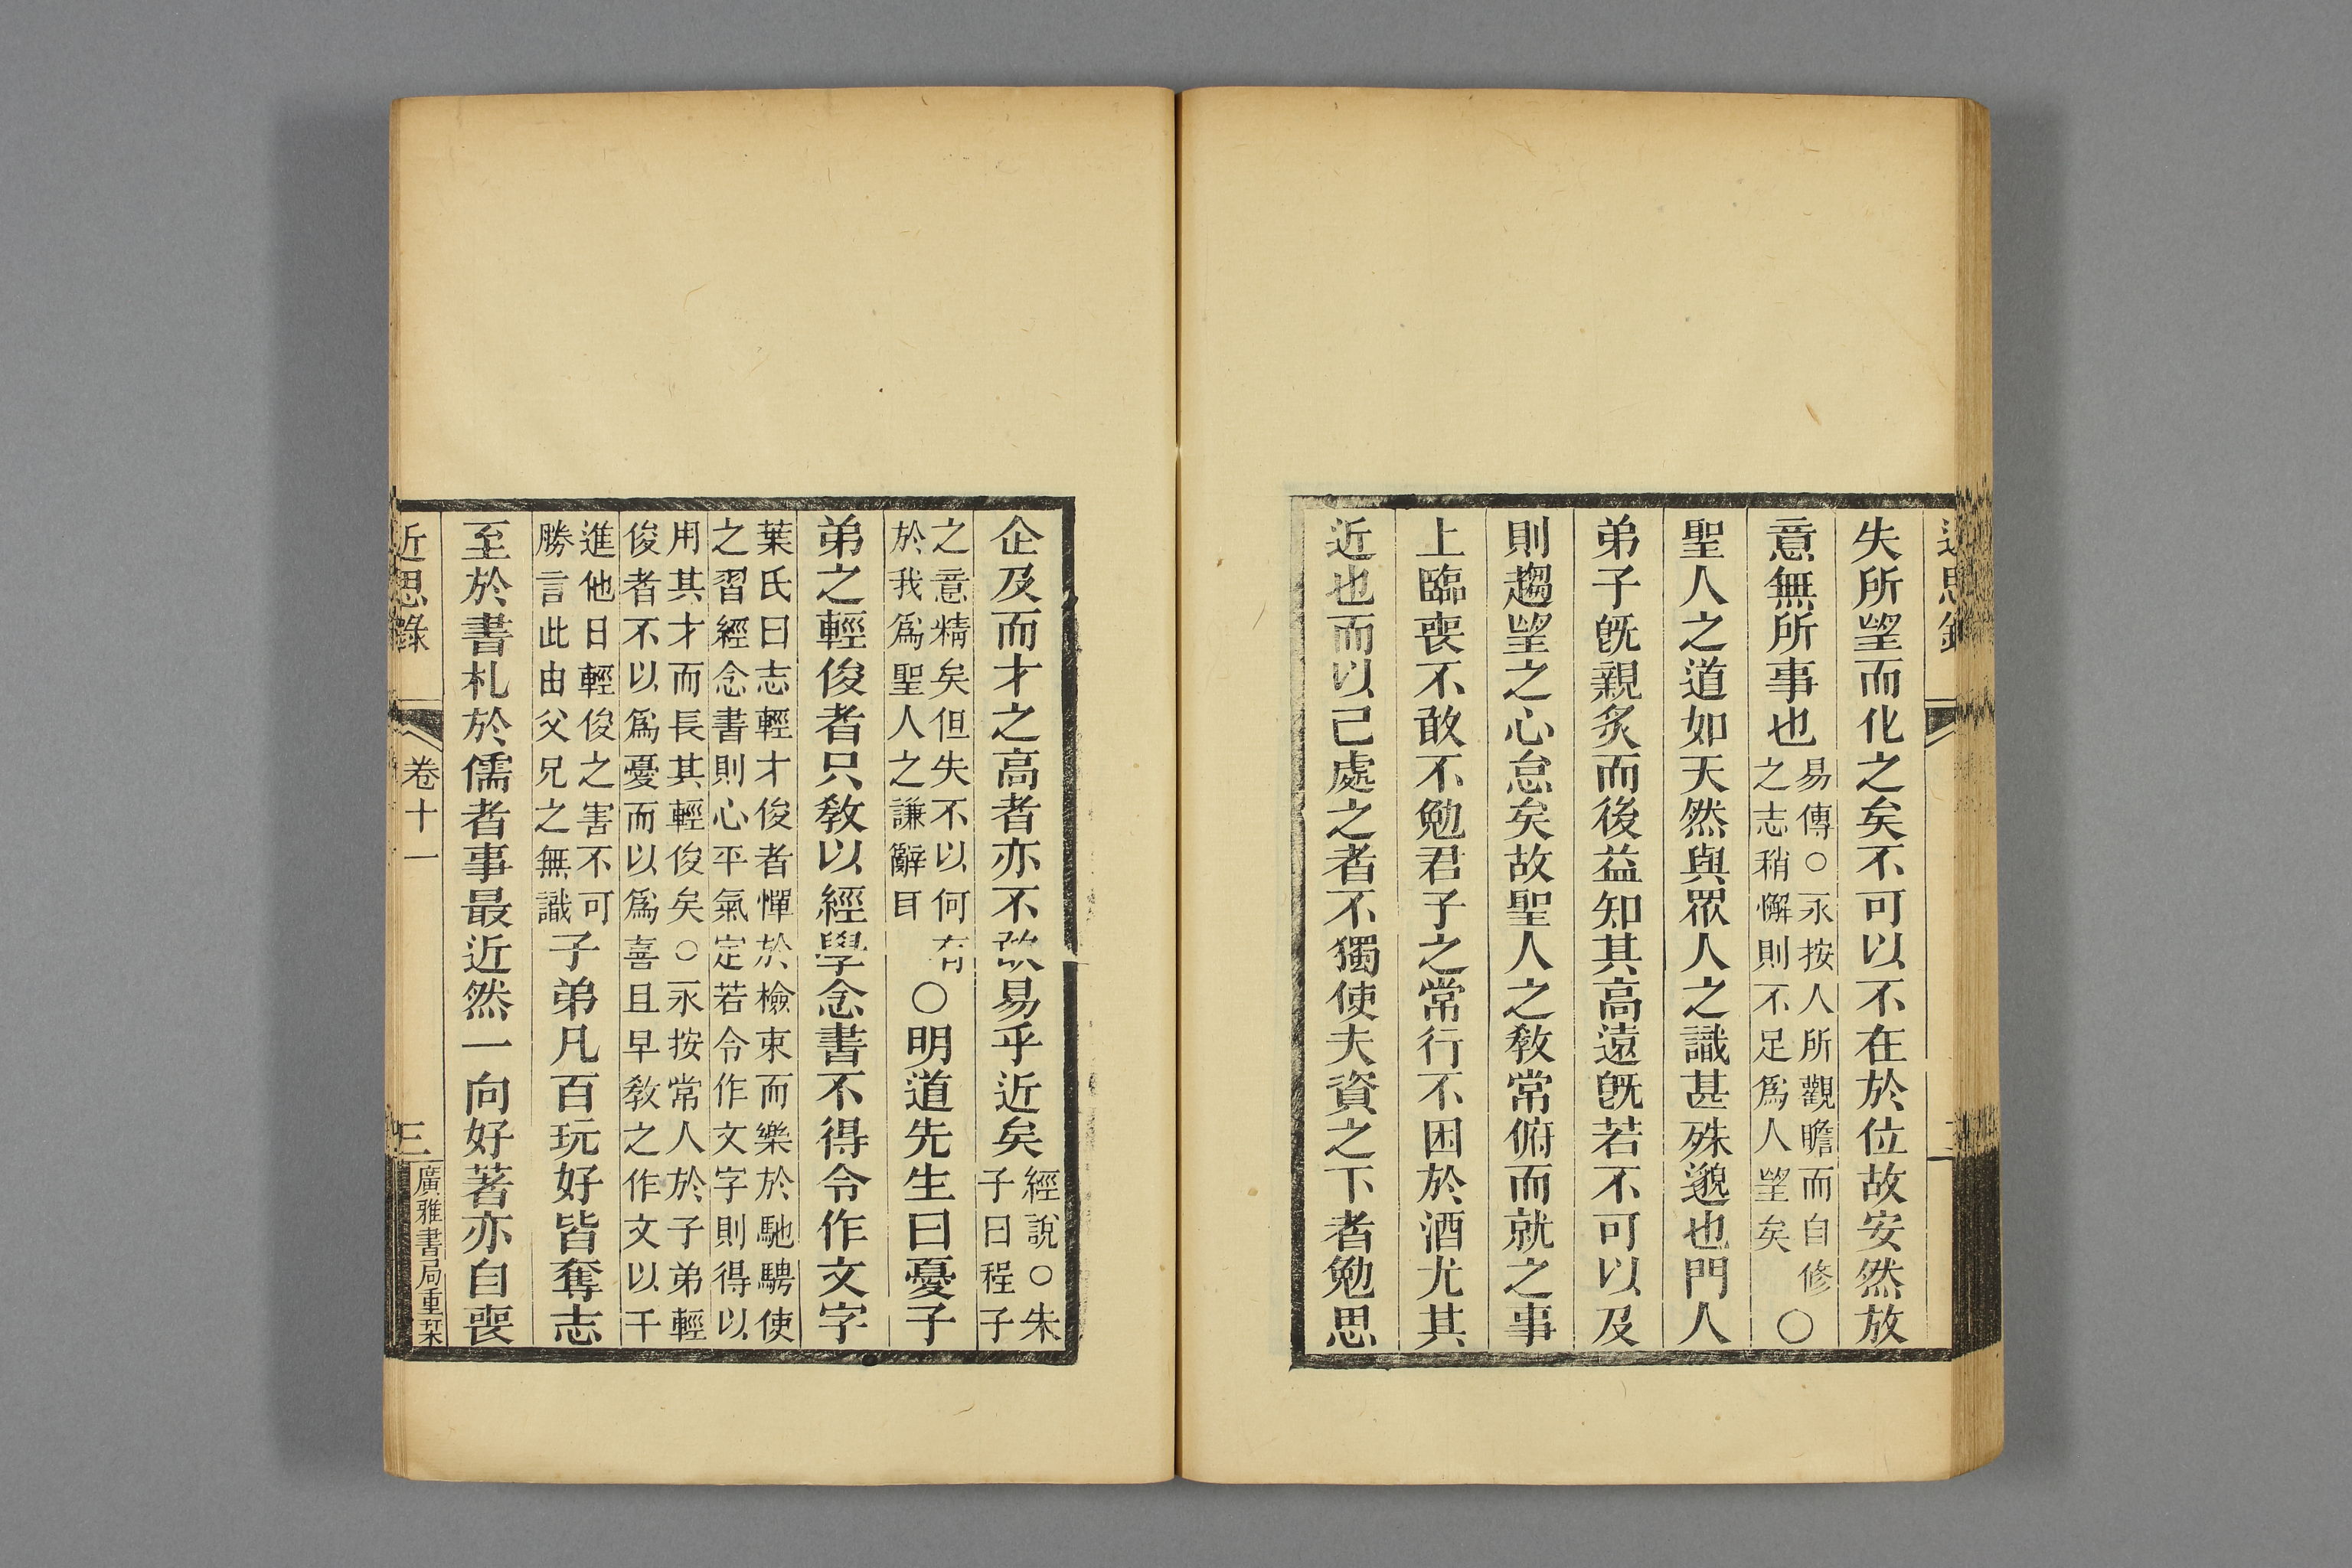 近思錄
失所望而化之矣不可以不在於位故安然放
意無所事也
易傳○永按人所觀瞻而自修
之志稍懈則不足爲人望矣
○
聖人之道如天然與眾人之識甚殊邈也門人
弟子旣親炙而後益知其高遠旣若不可以及
則趨望之心怠矣故聖人之教常俯而就之事
上臨喪不敢不勉君子之常行不困於酒尤其
近也而以己處之者不獨使夫資之下者勉思
企及而才之高者亦不敢易乎近矣
經說○朱
子曰程子
之意精矣但失不以何有
於我爲聖人之謙辭耳
○明道先生曰憂子
弟之輕俊者只教以經學念書不得令作文字
葉氏曰志輕才俊者憚於檢束而樂於馳騁使
之習經念書則心平氣定若令作文字則得以
用其才而長其輕俊矣○永按常人於子弟輕
俊者不以爲憂而以爲喜且早教之作文以干
進他日輕俊之害不可
勝言此由父兄之無識
子弟凡百玩好皆奪志
至於書札於儒者事最近然一向好著亦自喪
近思錄
卷十一
三
廣雅書局重栞